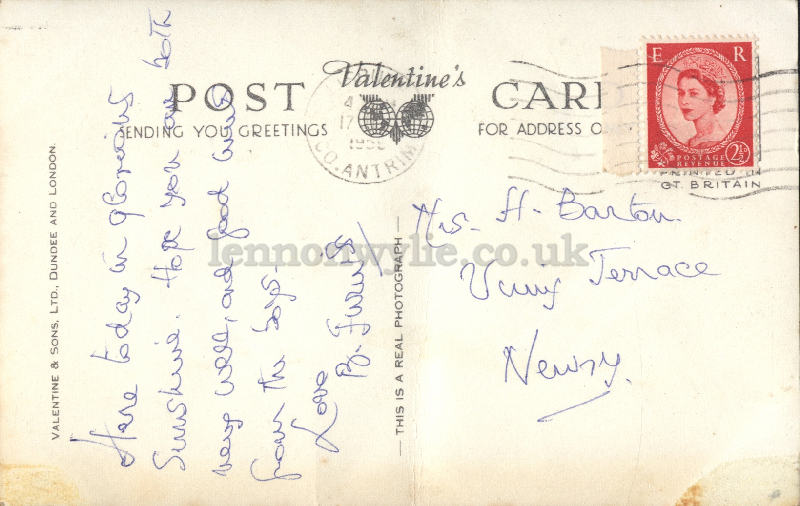 POST Valentine's CARD
SENDING YOU GREETINGS
FOR ADDRESS
CO. ANTRIM
E R
POSTAGE
REVENUE
2½D
PRINTED IN
GT. BRITAIN
VALENTINE & SONS, LTD., DUNDEE AND LONDON.
Here today in glorious
Sunshine. Hope you are both
very well, and good news
from the boys.
Love
THIS IS A REAL PHOTOGRAPH
Mrs. H. Barton
Terrace
Newry.
lennonwylie.co.uk